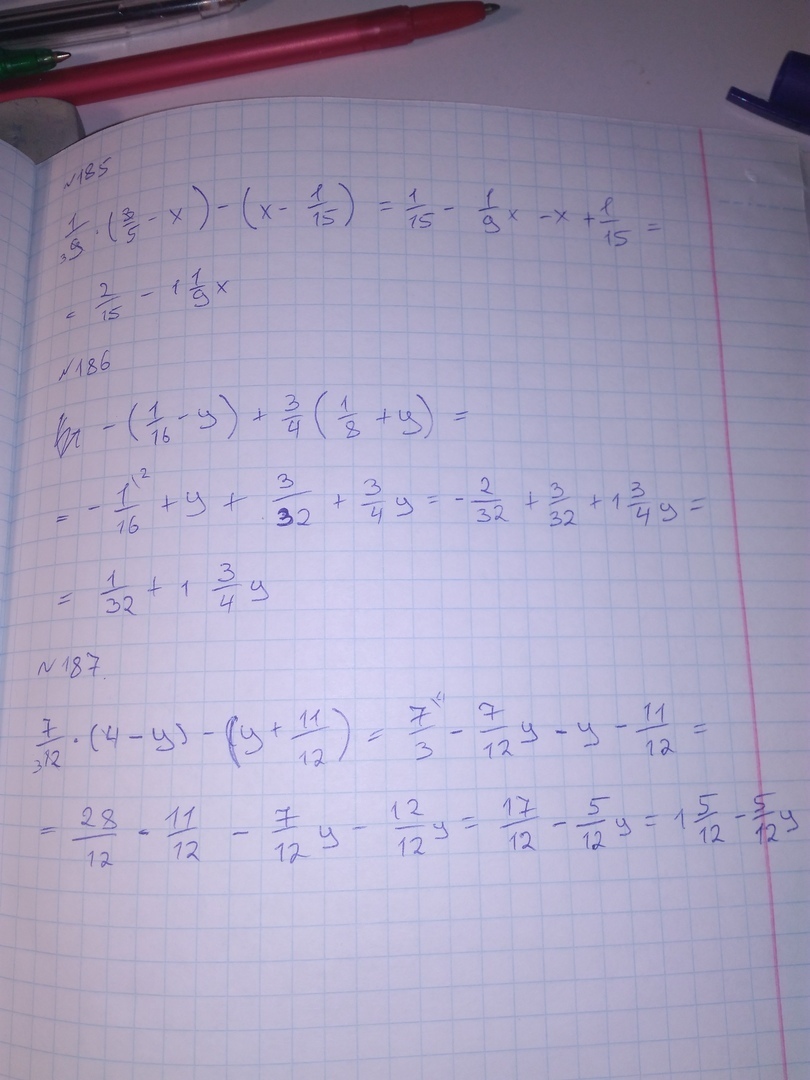 №185
1/9 · (3/5 - x) - (x - 1/15) = 1/15 - 1/9 x - x + 1/15 =
= 2/15 - 1 1/9 x
№186
- (1/16 - y) + 3/4 (1/8 + y) =
= - 1/16 \2 + y + 3/32 + 3/4 y = - 2/32 + 3/32 + 1 3/4 y =
= 1/32 + 1 3/4 y
№187.
7/12 · (4 - y) - (y + 11/12) = 7/3 \4 - 7/12 y - y - 11/12 =
= 28/12 - 11/12 - 7/12 y - 12/12 y = 17/12 - 5/12 y = 1 5/12 - 5/12 y